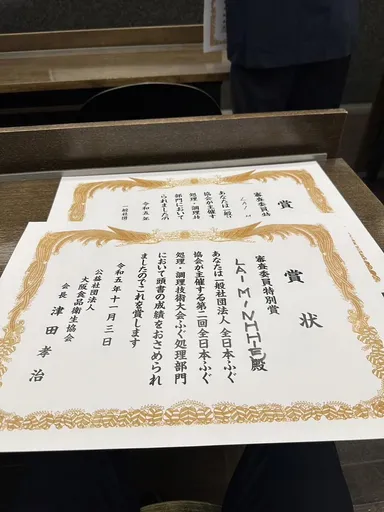 賞状
審査委員特別賞
LAI MIN 殿
あなたは一般社団法人全日本ふぐ
協会が主催する第二回全日本ふぐ
処理・調理技術大会ふぐ処理部門
において頭書の成績をおさめられ
ましたのでこれを賞します
令和五年十一月三日
公益社団法人
大阪食品衛生協会
会長 津田孝治
賞
審査委員特
LAI
あなたは一般
協会が主催す
処理・調理
部門において
られました
令和五年
一般社団